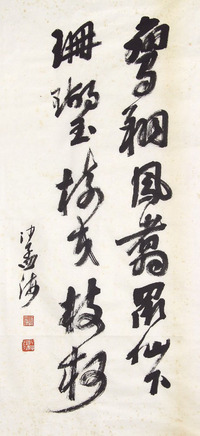 鸞翔鳳翥眾仙下
珊瑚碧樹交枝柯
沙孟海